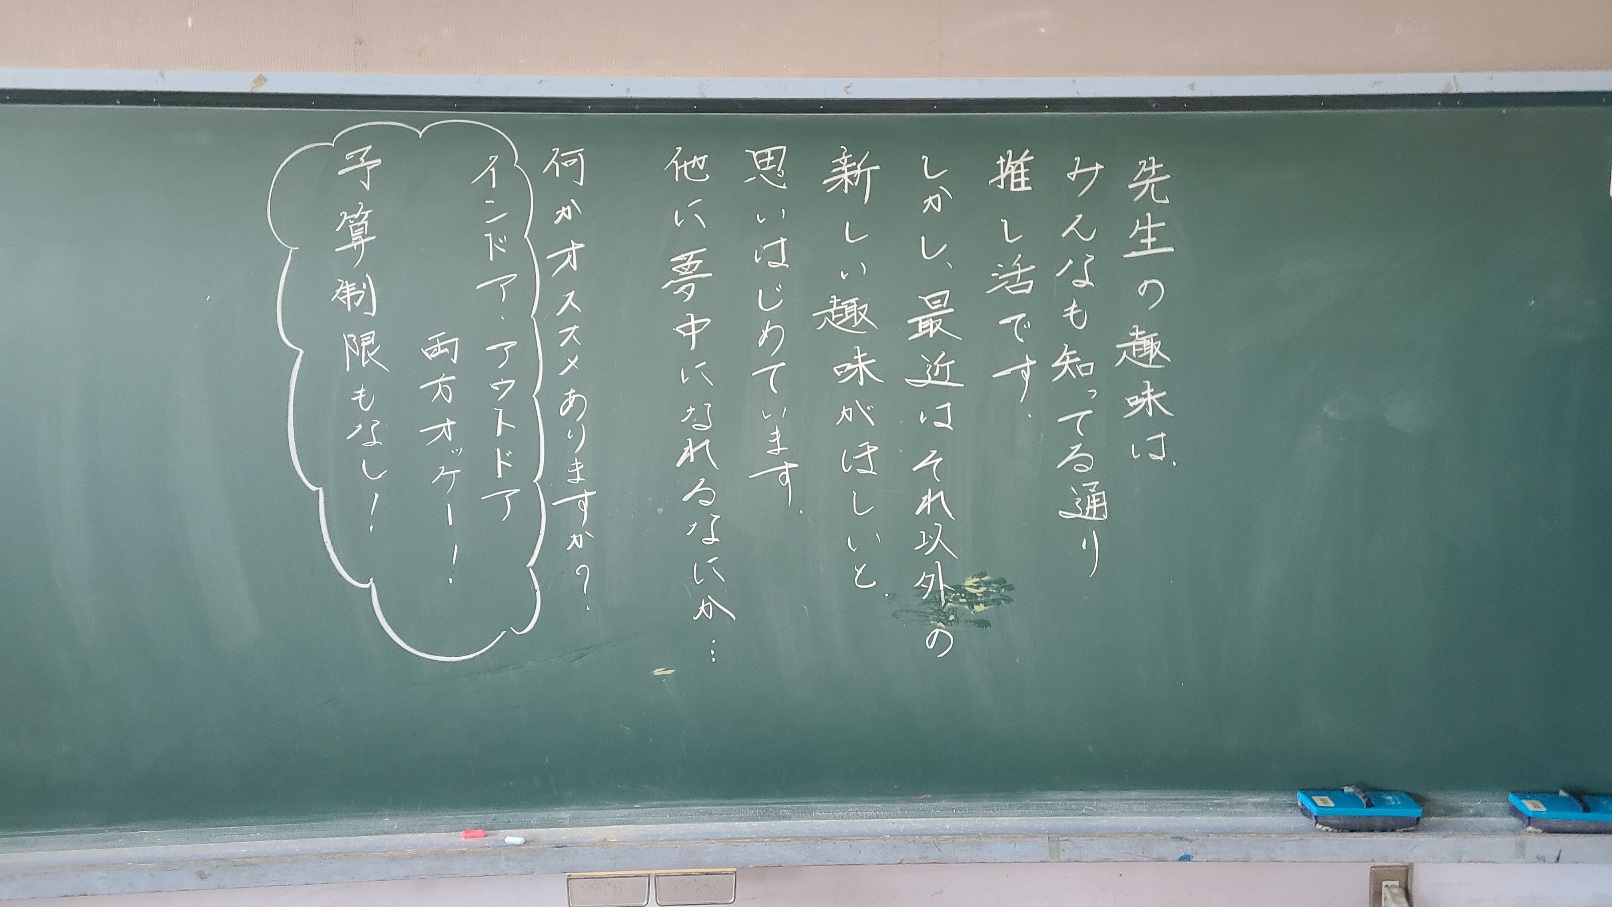 先生の趣味は、
みんなも知ってる通り
推し活です。
しかし、最近はそれ以外の
新しい趣味がほしいと、
思いはじめています。
他に夢中になれるなにか…
何かオススメありますか？
インドア・アウトドア
両方オッケー！
予算制限もなし！